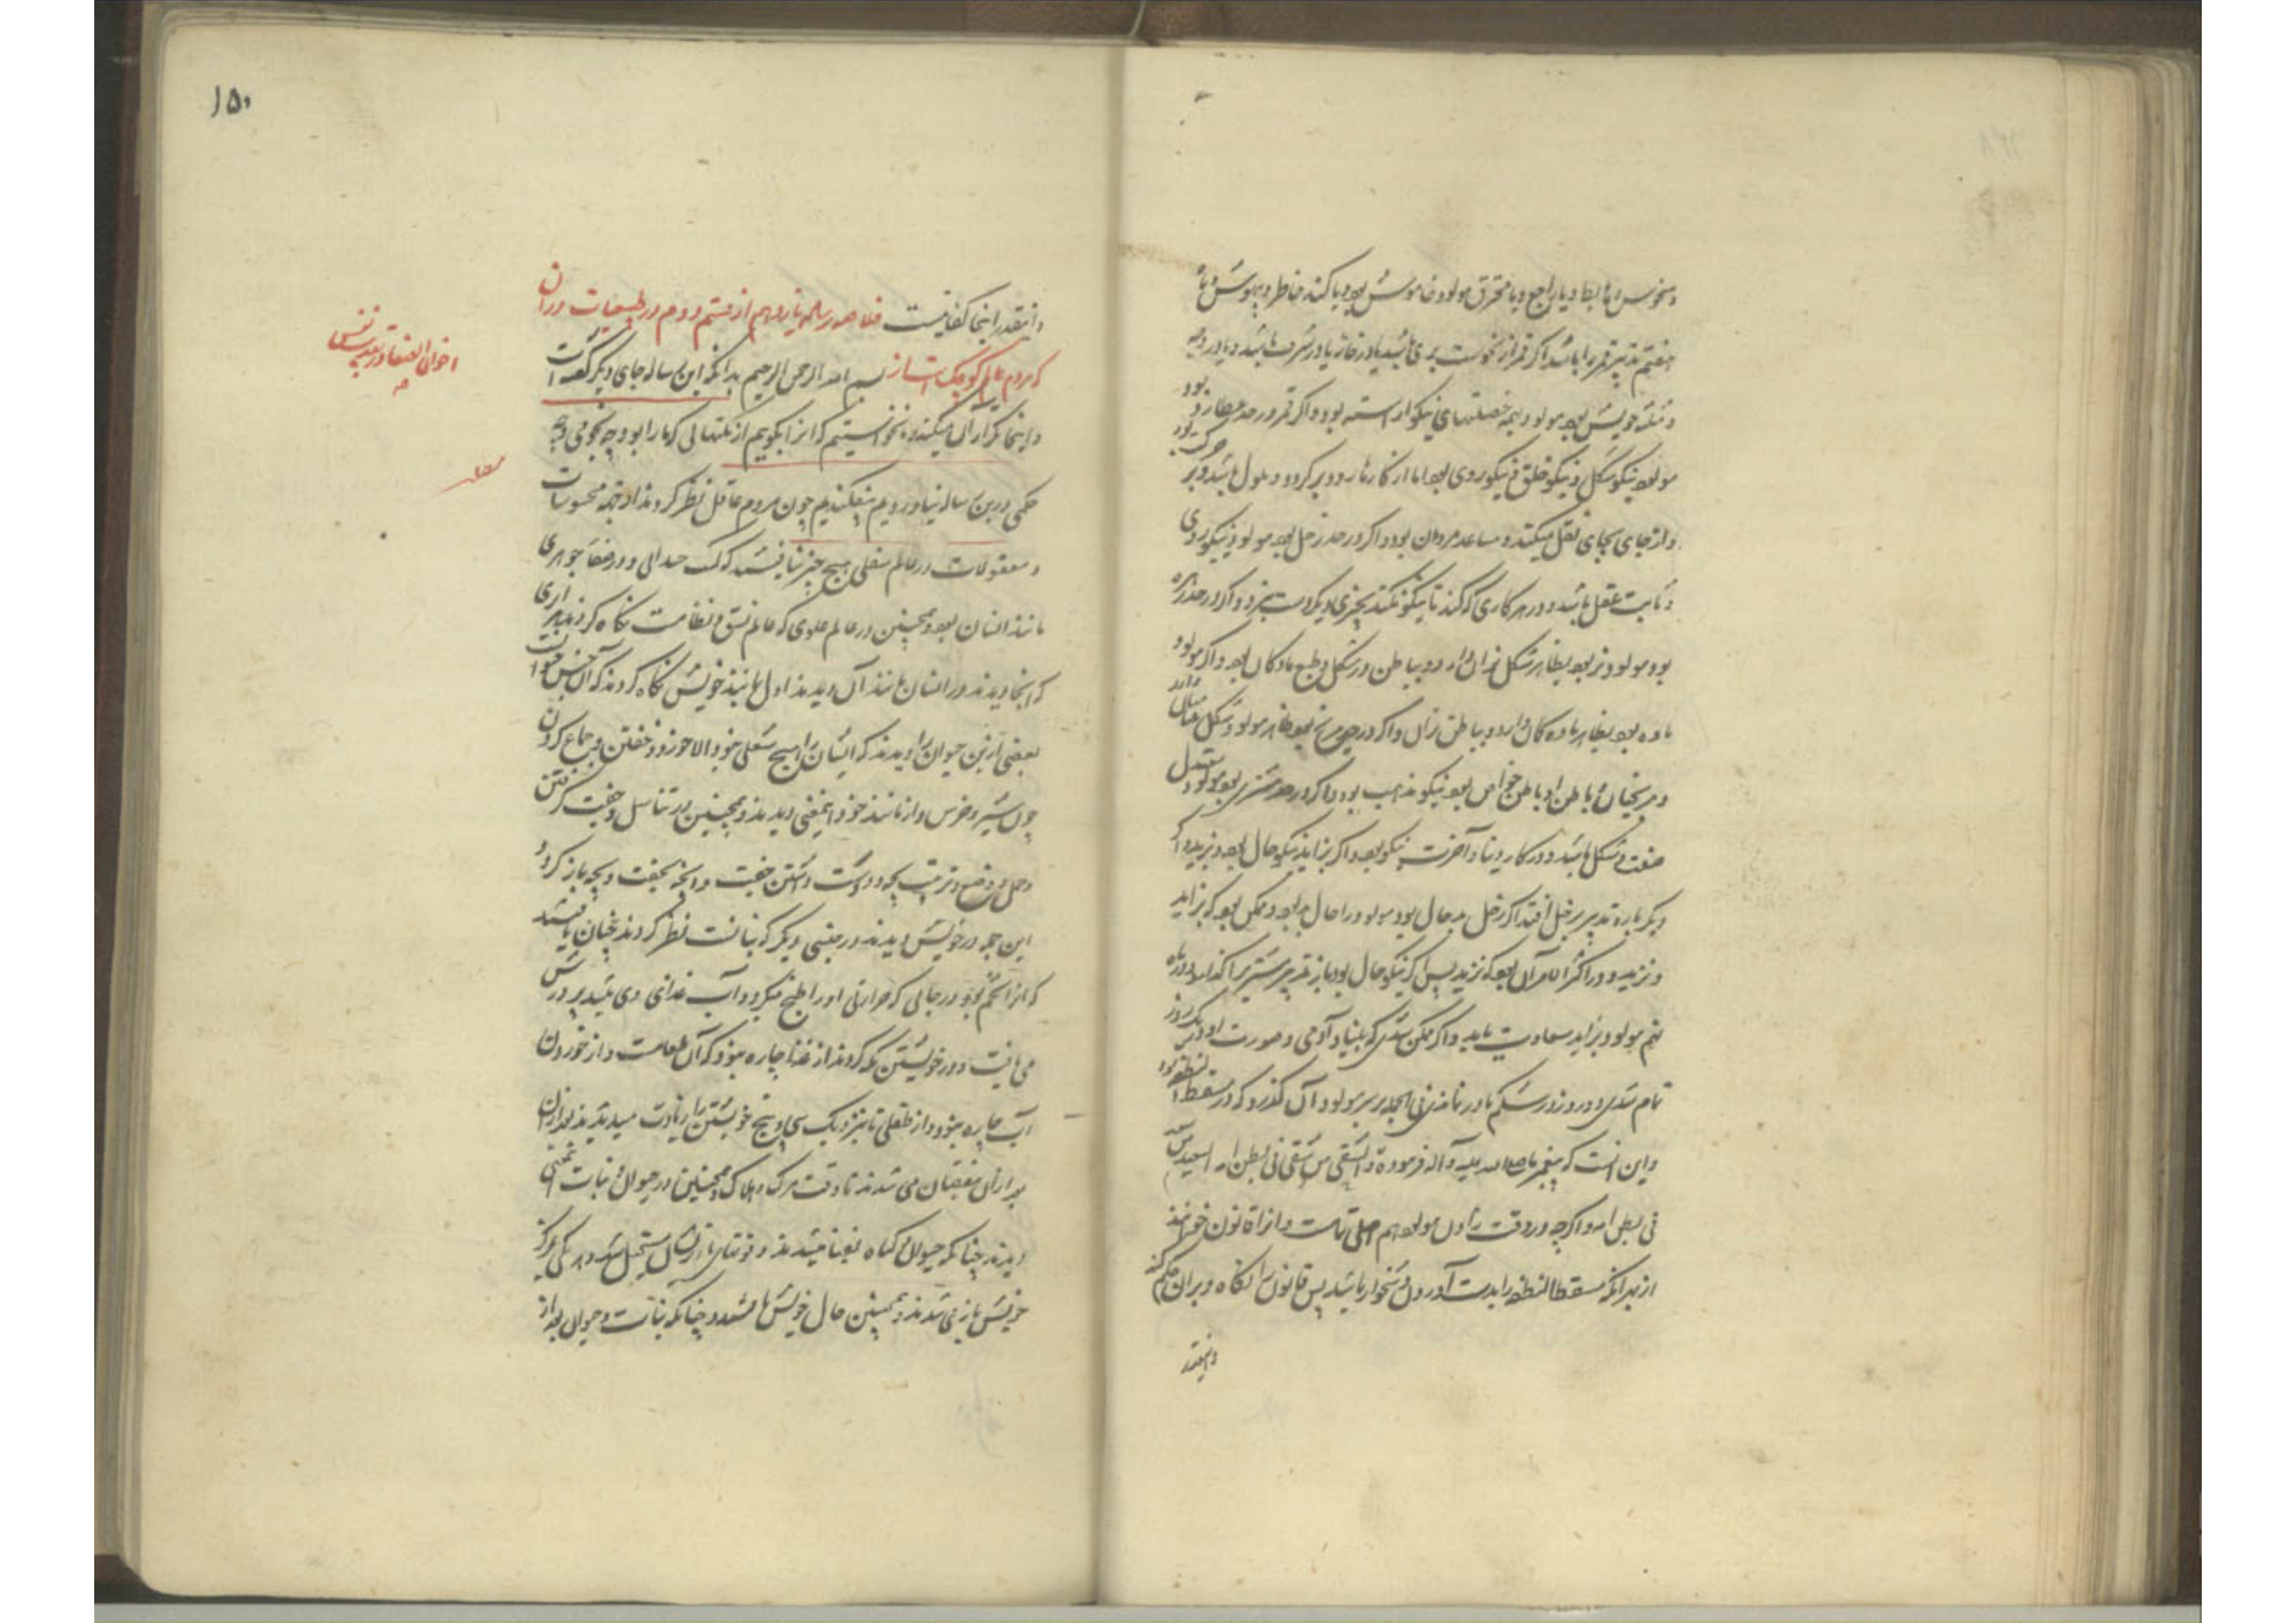 و منحوس یا هابط و یا راجع و یا محترق مولود خاموش بود و یا کند خاطر و بیهوش و با
هفتم تدبیر قمر را باشد اگر قمر از نحوست بری باشد یا در خانه یا در شرف باشد و یا در
مثلثه خویش بود مولود بهمه خصلتهای نیکو آراسته بود و اگر قمر در حد عطارد بود
مولود نیکو شکل و نیکو خلق و نیکو روی بود اما از کارها زود بر گردد و ملول باشد و
و از جای بجای نقل میکند و مساعد مردمان بود و اگر در حد زحل بود مولود نیکوروی
و ثابت عقل باشد و در هر کاری که کند تا نیکو نکند بچیزی دیگر دست نبرد و اگر در حد زهره
بود مولود نر بود بظاهر شکل نران دارد و بباطن در شکل و طبع مادگان بود و اگر مولود
ماده بود بظاهر ماده گان دارد و بباطن نران و اگر در حد مریخ بود ظاهر مولود شکل دارد
و مریخیان و باطن او باطن خواص بود نیکو مذهب بود و اگر در حد مشتری بود مولود
صفت و شکل باشد و در کار دنیا و آخرت نیکو بود و اگر بزاید نیکو حال بود و بزید و
دیگر باره تدبیر بزحل افتد اگر زحل بد حال بود مولود را حال بد بود و ممکن بود که بزاید
و نزید و در اکثر الامر آن بود که نزید پس اگر نیکو حال بود باز تدبیر بمشتری گذارد و در ماه
نهم مولود بزاید سعادت یابد و اگر ممکن شدی که بنیاد آدمی و صورت او در یک روز
تمام شدی و در روز در شکم مادر نماندی فی الجمله بر سر مولود آن گذرد که در مسقط النطفه بود
و این آنست که پیغمبر ما صلی الله علیه و آله فرموده والشقی من شقی فی بطن امه السعید من سعد
فی بطن امه و اگرچه در وقت زادن مولود هم اصلی تمامست و از آن قانون خوانند
از بهر آنکه مسقط النطفه را بدست آوردن دشخوار باشد پس قانون را نگاه و بران حکم کند
و اینقدر
۱۵۰
و اینقدر اینجا کفایتست خلاصه رساله یازدهم از قسم دوم در طبیعیات در آن
که مردم عالم کوچک است از بسم الله الرحمن الرحیم بدانکه این رساله جای دیگر گفته است
و اینجا تکرار آن میکند و نخواستیم که آنرا بگوییم از نکتهایی که ما را بود و چه نجومی و چه
حکمی درین رساله نیاوردیم نیفکندیم چون مردم عاقل نظر کردند از جهة محسوسات
و معقولات در عالم سفلی هیچ چیز نیافتند که و در صفا جوهری
مانند انسان بود و همچنین در عالم علوی که عالم نسق و نظامست نگاه کردند هر چیزی
که اینجا دیدند در انسان مانند آن دیدند اول مانند خویش نگاه کردند که آن جنس حیوانست
بعضی ازین حیوان را دیدند که ایشان را هیچ شغلی نبود الا خوردن و خفتن و جماع کردن
چون شیر و خرس و از مانند خود اینمعنی دیدند و همچنین در تناسل و جفت گرفتن
و حمل و وضع و تربیت بچه و دوست داشتن جفت و بچه بجفت و بچه باز کردن
این جمله در خویش دیدند در جنسی دیگر که نباتست نظر کردند چنان یافتند
که آنرا تخم بود در جایی که حرارتی او را طبخ میکرد و آب غذای وی باشد پرورش
می یافت و در خویشتن نگه کردند از غذا چاره نبود که آن طعامست و از خوردن
آب چاره نبود و از طفلی تا نزدیک سی و پنج خویشتن را زیادت میدیدند بعد از آن
بعد از آن نقصان می شدند تا وقت مرگ و هلاک و همچنین در حیوان و نبات همین
دیدند چنانکه حیوان و گیاه بفنا میشدند و قوتهای ایشان مستحیل شد و هر یکی بمرکز
خویش باز می شدند و همچنین حال خویش یافتند و چنانکه نبات و حیوان بعد از
اخوان الصفا در تعریف نفس